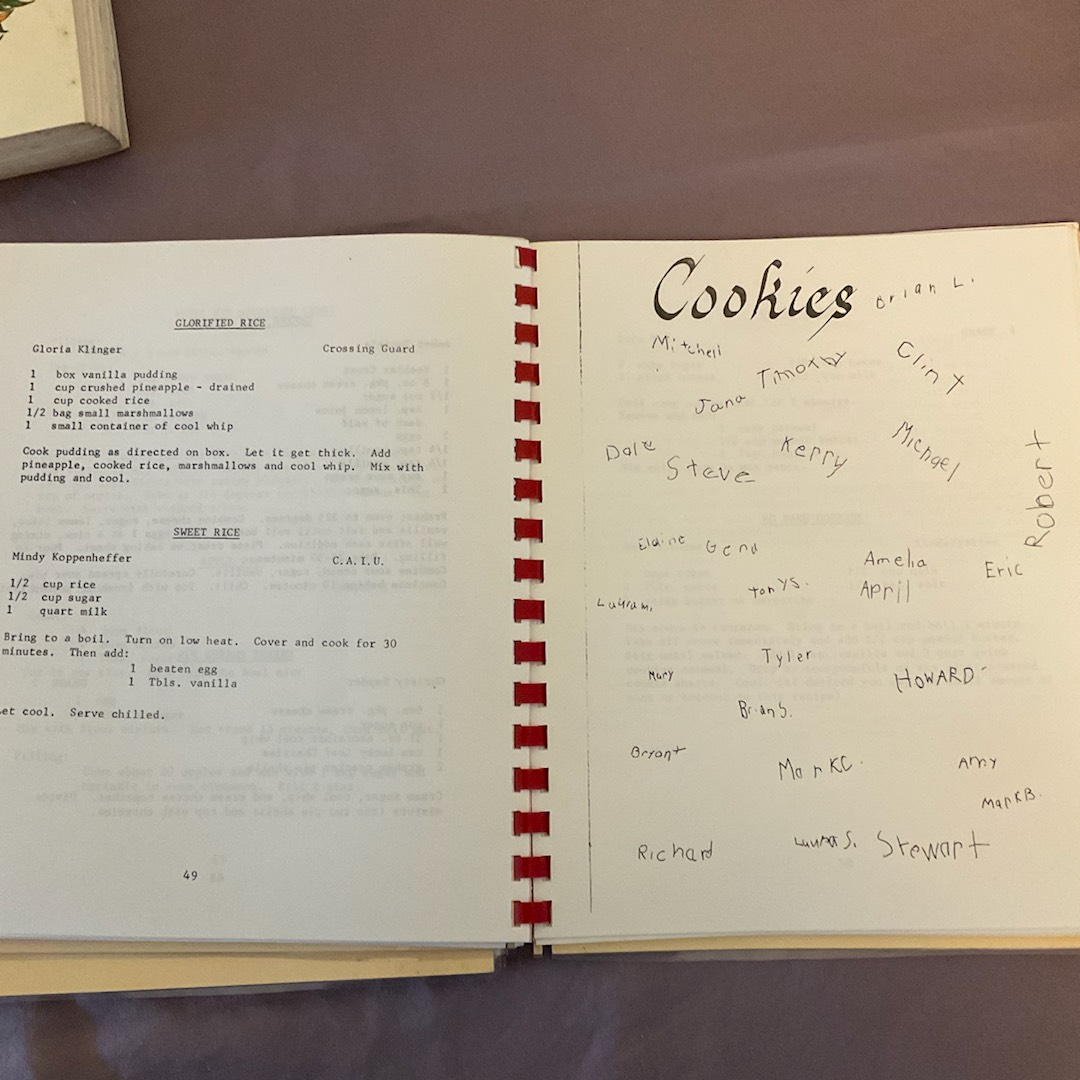 GLORIFIED RICE
Gloria Klinger Crossing Guard
1 box vanilla pudding
1 cup crushed pineapple - drained
1 cup cooked rice
1/2 bag small marshmallows
1 small container of cool whip
Cook pudding as directed on box. Let it get thick. Add
pineapple, cooked rice, marshmallows and cool whip. Mix with
pudding and cool.
SWEET RICE
Mindy Koppenheffer C.A.I.U.
1/2 cup rice
1/2 cup sugar
1 quart milk
Bring to a boil. Turn on low heat. Cover and cook for 30
minutes. Then add:
1 beaten egg
1 Tbls. vanilla
et cool. Serve chilled.
49
Cookies
Brian L.
Mitchell
Timothy
Clint
Jana
Dale
Steve
Kerry
Michael
Robert
Elaine
Gena
Amelia
Eric
Tony S.
April
Laura M.
Tyler
Mary
HOWARD
Brian S.
Bryant
Mark C.
Amy
Mark B.
Richard
Laura S.
Stewart